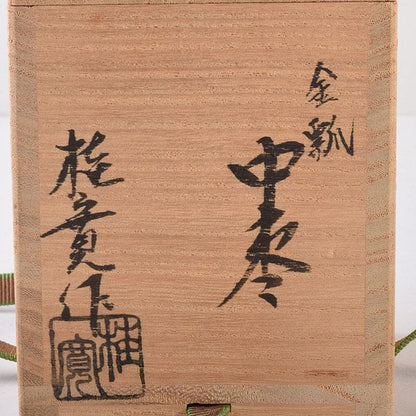 金瓢
中棗
桂寛作
桂寛